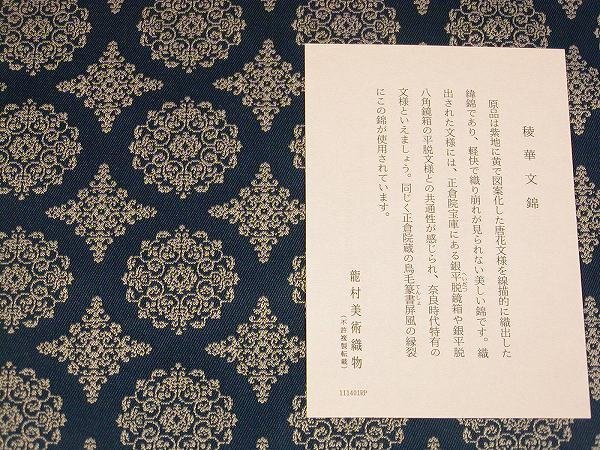 稜華文錦
原品は紫地に黄で図案化した唐花文様を線描的に織出した
緯錦であり、軽快で織り崩れが見られない美しい錦です。織
出された文様には、正倉院宝庫にある銀平脱鏡箱や銀平脱
へいだつ
八角鏡箱の平脱文様との共通性が感じられ、奈良時代特有の
文様といえましょう。同じく正倉院蔵の鳥毛篆書屏風の縁裂
てんしょ
にこの錦が使用されています。
龍村美術織物
(不許複製転載)
111401RP